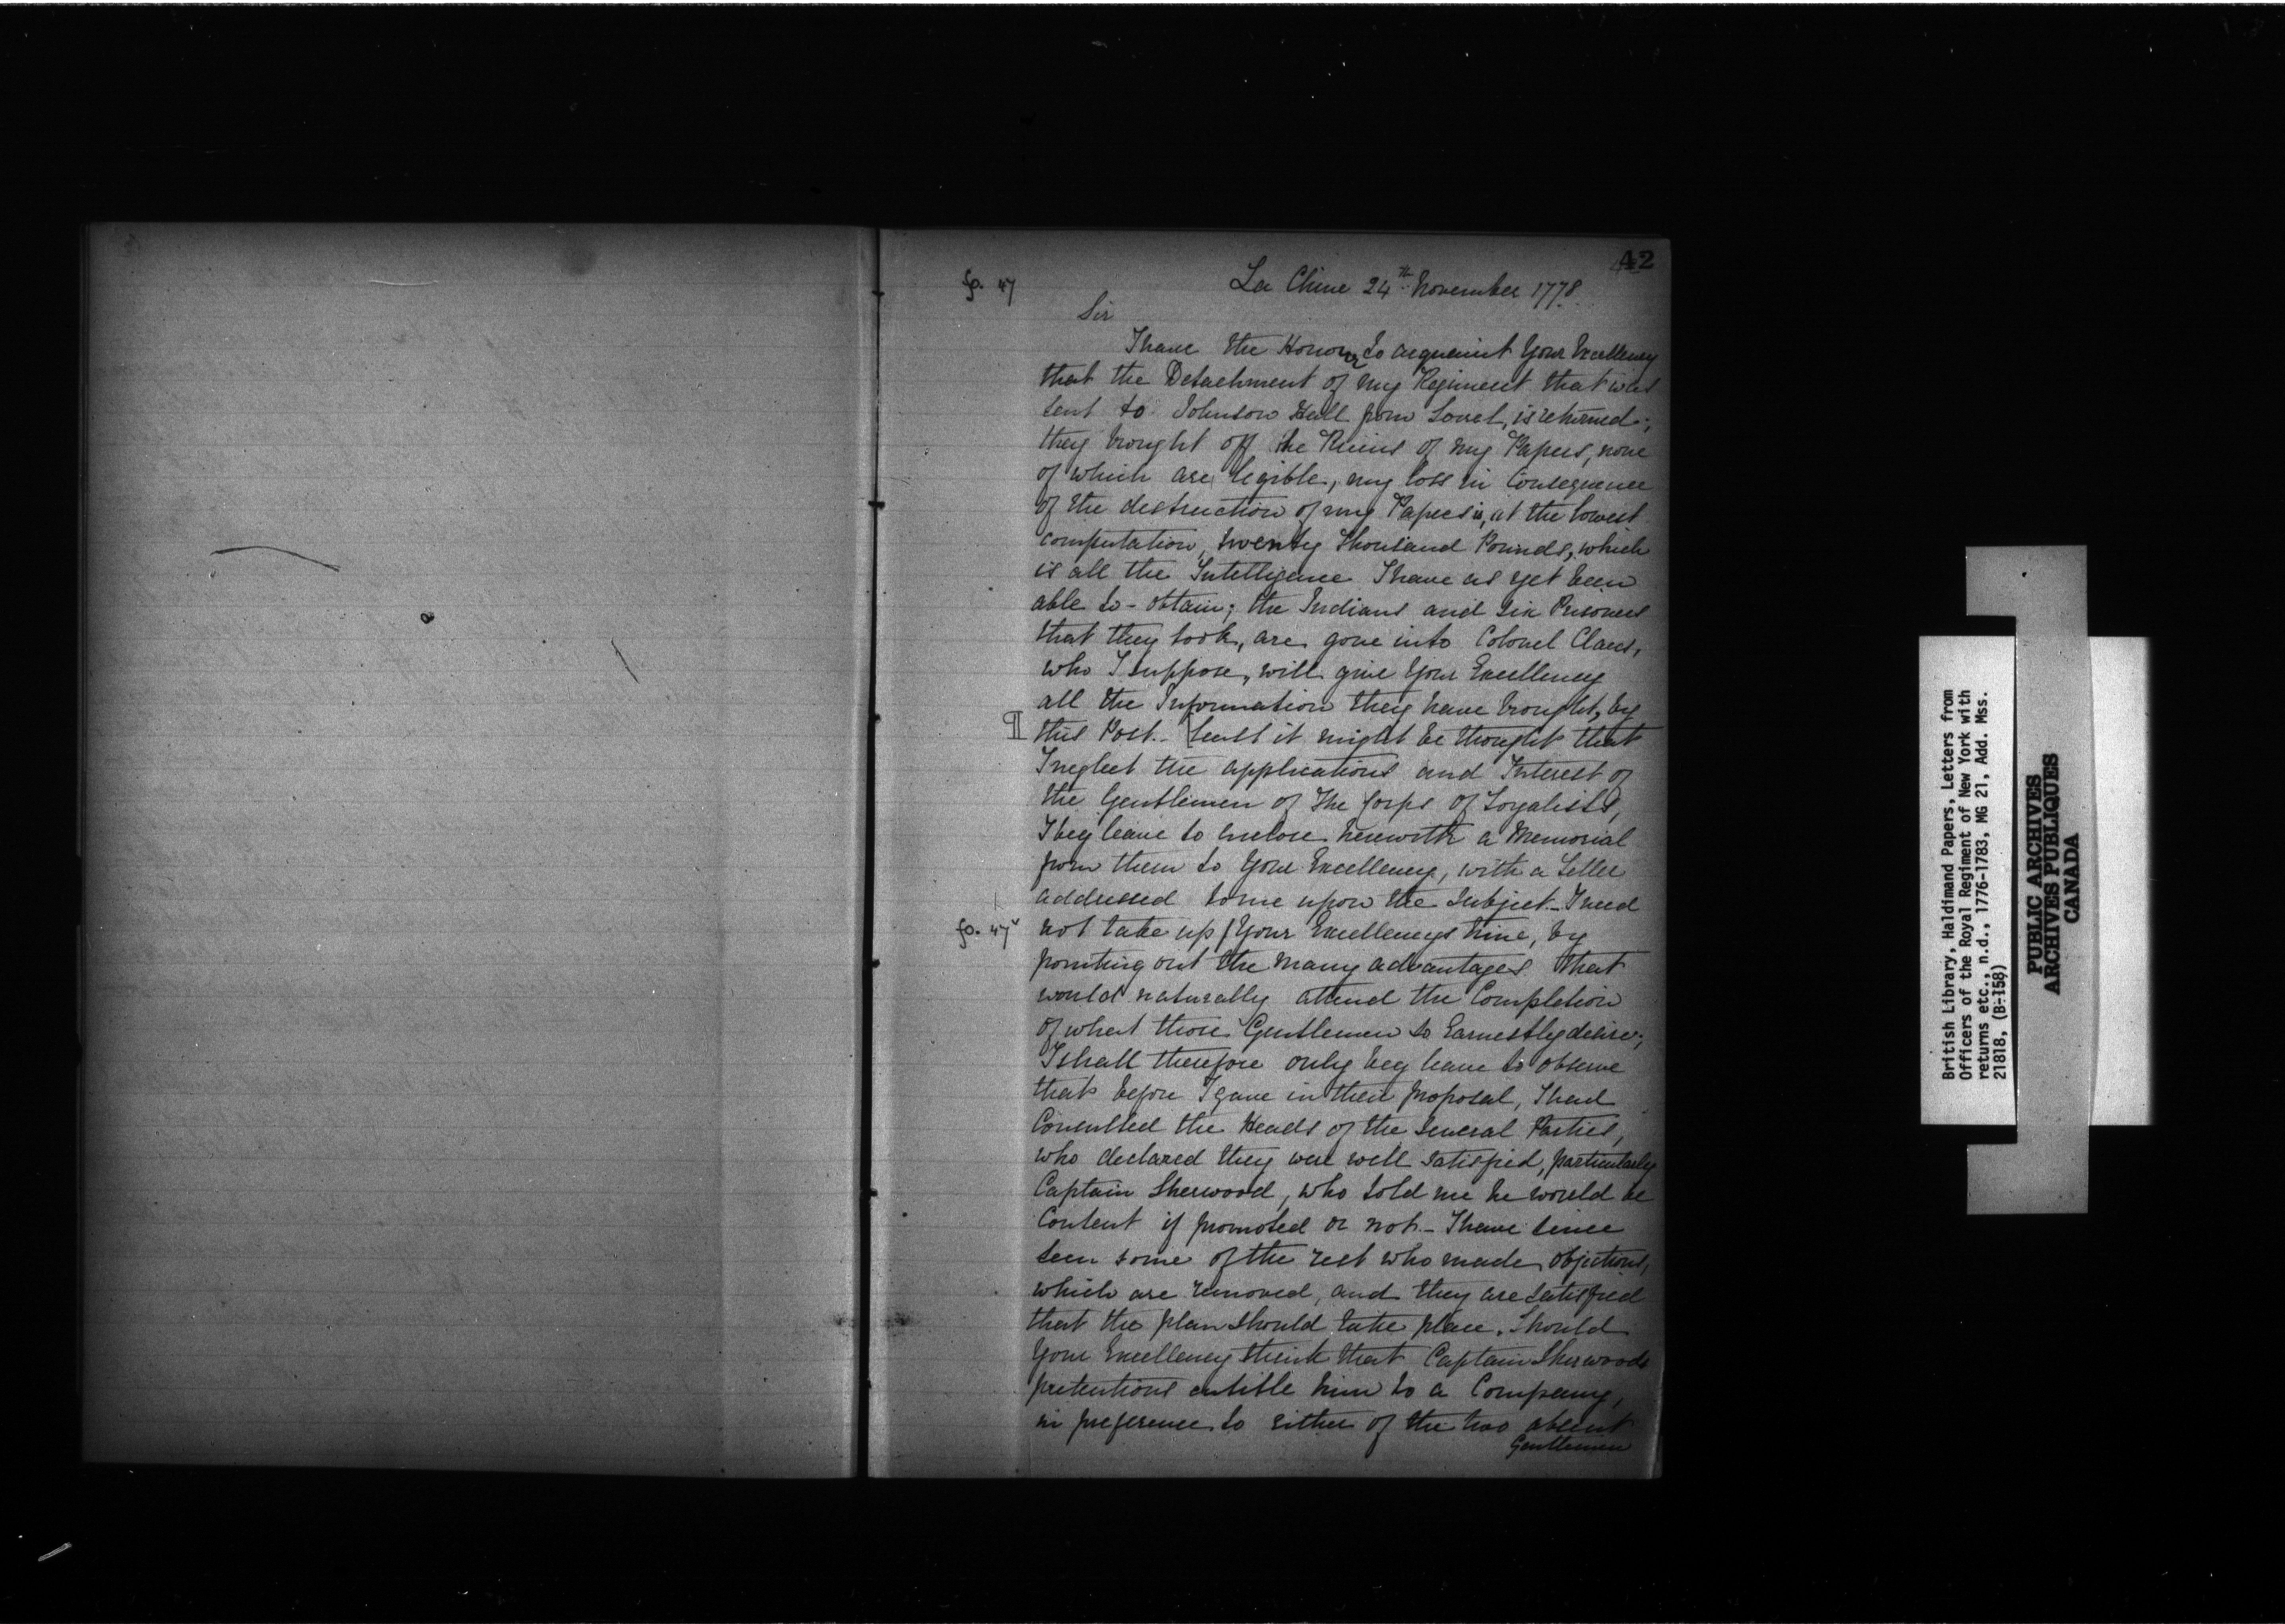 42
fo. 47
La Chine 24th November 1778
Sir
I have the Honour to acquaint Your Excellency
that the Detachment of my Regiment that was
sent to Johnson Hall from Sorel, is returned;
they brought off the Ruins of my Papers, none
of which are legible, my loss in Consequence
of the destruction of my Papers is, at the lowest
computation, twenty thousand Pounds, which
is all the Intelligence I have as yet been
able to obtain; the Indians and six Prisoners
that they took, are gone into Colonel Claus,
who I suppose, will give Your Excellency
all the Information they have brought, by
¶ this Post. - [Least it might be thought that
I neglect the applications and Interest of
the Gentlemen of the Corps of Loyalists,
I beg leave to enclose herewith a Memorial
from them to Your Excellency, with a Letter
addressed to me upon the Subject - I need
fo. 47v not take up / Your Excellencys time, by
pointing out the many advantages that
would naturally attend the Completion
of what those Gentlemen so Earnestly desire;
I shall therefore only beg leave to observe
that before I gave in their proposal, I had
Consulted the Heads of the Several Parties,
who declared they were well satisfied, particularly
Captain Sherwood, who told me he would be
Content if promoted or not. - I have since
seen some of the rest who made objections,
which are removed, and they are satisfied
that the plan should take place. Should
Your Excellency think that Captain Sherwoods
pretentions entitle him to a Company,
in preference to either of the two absent
Gentlemen
British Library, Haldimand Papers, Letters from
Officers of the Royal Regiment of New York with
returns etc., n.d., 1776-1783, MG 21, Add. Mss.
21818, (B-158)
PUBLIC ARCHIVES
ARCHIVES PUBLIQUES
CANADA